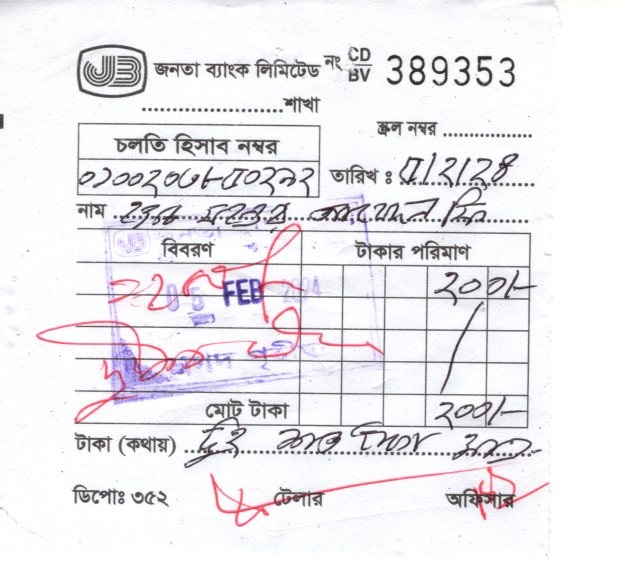 JB জনতা ব্যাংক লিমিটেড নং CD/BV 389353
....................শাখা
স্ক্রল নম্বর ................
চলতি হিসাব নম্বর
তারিখ : ৫/২/২৪
নাম
বিবরণ টাকার পরিমাণ
২০০/-
05 FEB 2024
মোট টাকা ২০০/-
টাকা (কথায়) দুই শত টাকা মাত্র
ডিপোঃ ৩৫২ টেলার অফিসার